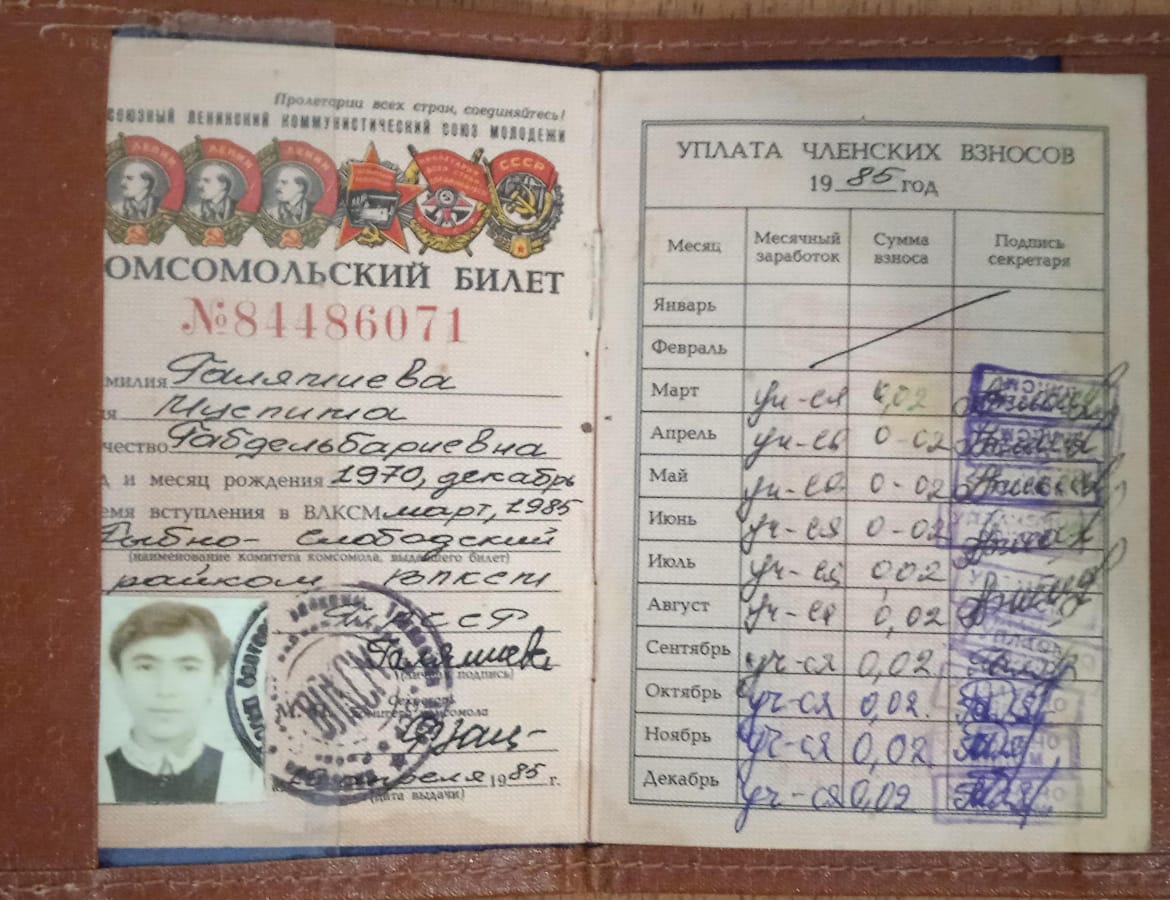 Пролетарии всех стран, соединяйтесь!
СОЮЗНЫЙ ЛЕНИНСКИЙ КОММУНИСТИЧЕСКИЙ СОЮЗ МОЛОДЕЖИ
ЛЕНИН ЛЕНИН ЛЕНИН СССР
ОМСОМОЛЬСКИЙ БИЛЕТ
№84486071
милия Галямиева
я
чество Габдельбариевна
д и месяц рождения 1970, декабрь
емя вступления в ВЛКСМ март, 1985
Рыбно-Слободский
(наименование комитета комсомола, выдавшего билет)
райком ВЛКСМ
(личная подпись)
Секретарь
М. комитета комсомола
ВЛКСМ
апреля 1985 г.
(дата выдачи)
УПЛАТА ЧЛЕНСКИХ ВЗНОСОВ
1985 год
Месяц Месячный заработок Сумма взноса Подпись секретаря
Январь
Февраль
Март уч-ся 0,02
Апрель уч-ся 0-02
Май уч-ся 0-02
Июнь уч-ся 0-02
Июль уч-ся 0,02
Август уч-ся 0,02
Сентябрь уч-ся 0,02
Октябрь уч-ся 0,02.
Ноябрь уч-ся 0,02
Декабрь уч-ся 0,02